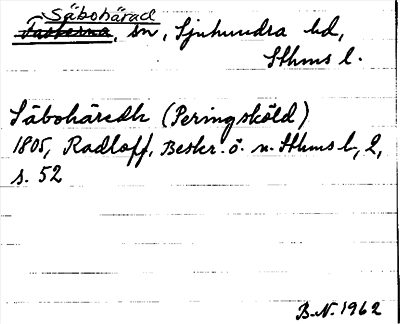 Säbohärad
Fasterna, sn, Sjuhundra hd,
Sthms l.
Säbohäredh (Peringsköld)
1805, Radloff, Beskr. ö. n. Sthms l, 2,
s. 52
B.N. 1962